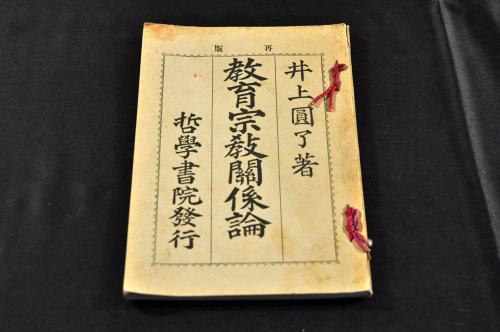 再版
井上圓了著
教育宗教關係論
哲學書院發行